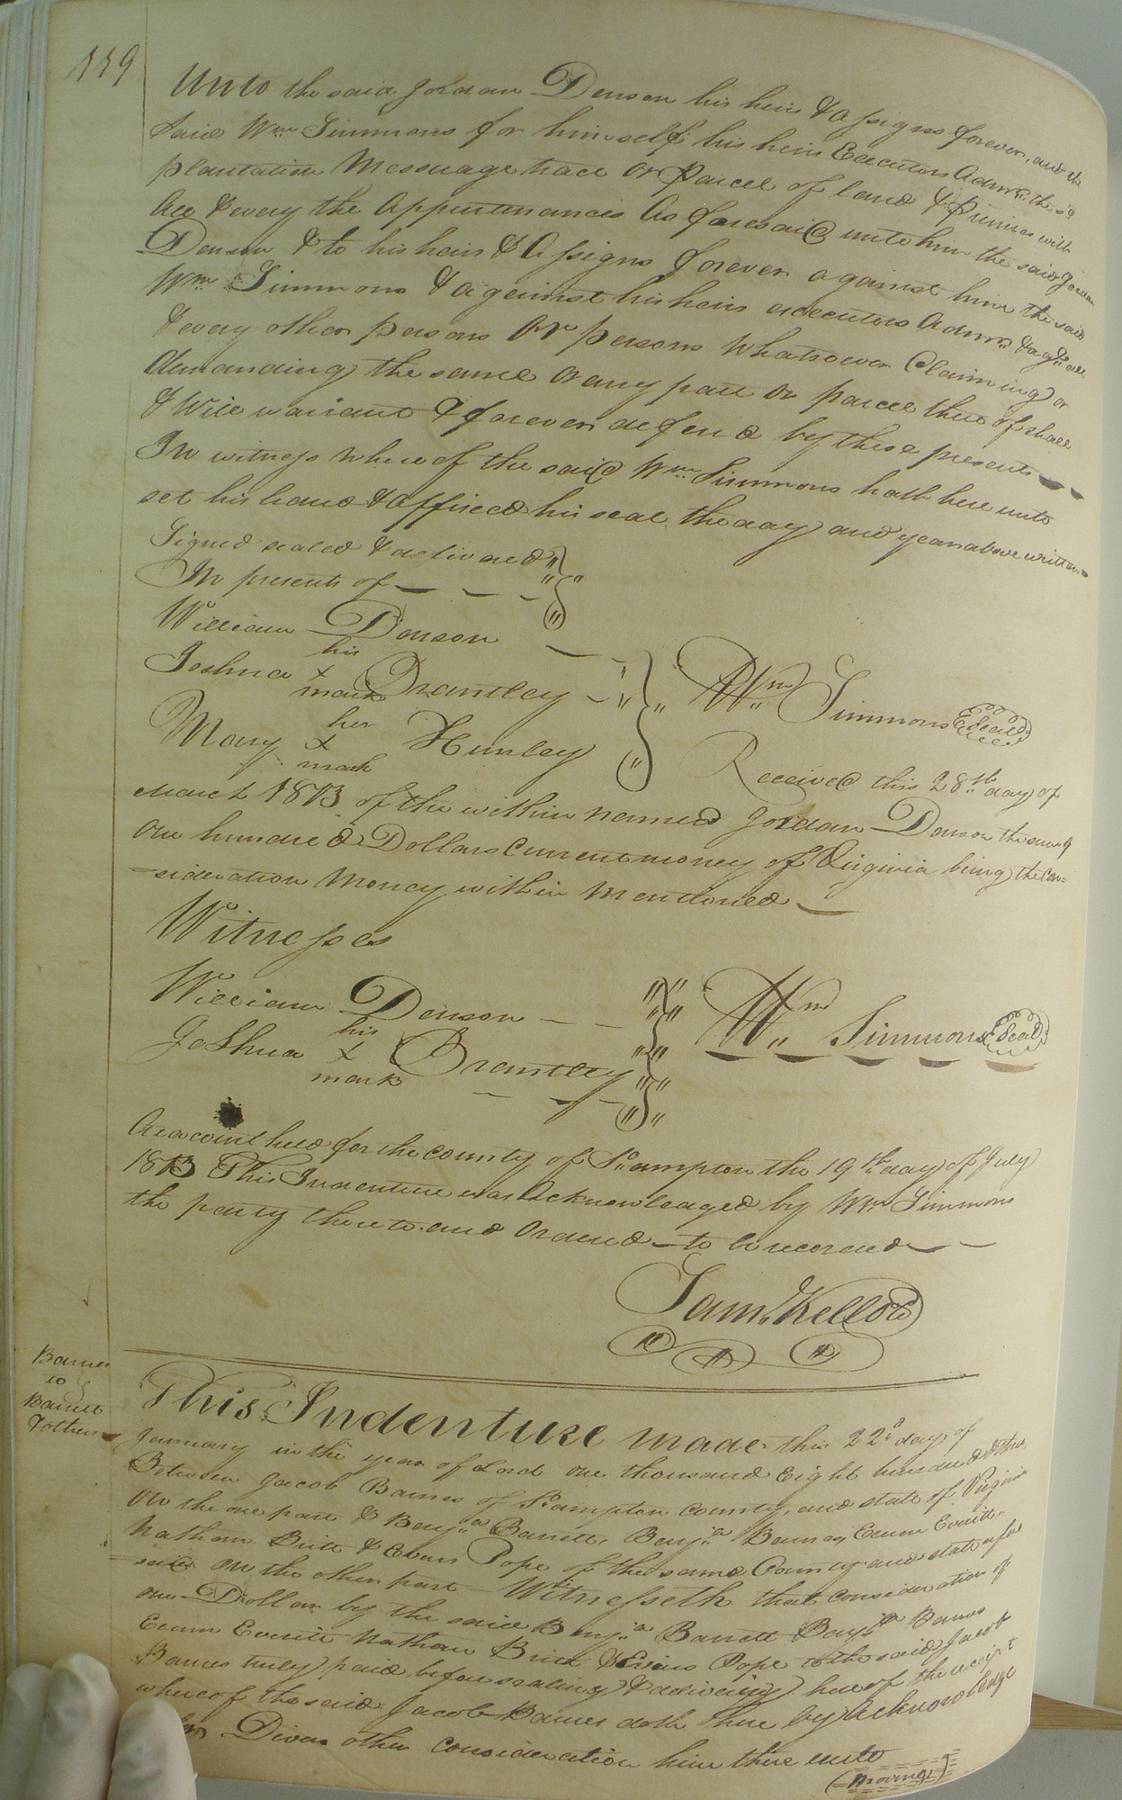 119
Unto the said Jordan Denson his heirs & assigns forever, and the
Said Wm Simmons for himself, his heirs Executors Admrs. the sd
plantation Messuage tract or Parcel of land & Primises with
All & every the Appurtenances As foresaid unto him the said Jordan
Denson & to his heirs & Assigns forever against him the said
Wm Simmons & against his heirs executors Admrs & agst. all
& every other persons Or persons whatsoever Claiming or
demanding the same or any part or parcel there of shall
& Will warrant & forever defend by these presents
In witness where of the said Wm Simmons hath here unto
set his hand & affixed his seal the day and year above written
Signed sealed & delivered
In presents of
William Denson
his
Joshua x Brantley
mark
Wm Simmons Seal
her
Mary x Hunley
mark
Received this 28th day of
March 1813 of the within named Jordan Denson the sum of
One hundred Dollars Current money of Virginia being the con=
-sideration Money within mentioned
Witnesses
William Denson
his
Joshua x Brantley
mark
Wm Simmons Seal
At a court held for the county of So.ampton the 19th day of July
1813 This Indenture was Acknowledged by Wm Simmons
the party thereto and Ordered to be recorded
Saml. Kello CC
Barnes
to
Barrett
& others
This Indenture made this 22d day of
January in the year of Lord one thousand Eight hundred &
Between Jacob Barnes of So.ampton County, and state of Virginia
On the one part & Benja. Barrett, Benja. Barnes, Exum Everitt,
Nathan Britt & Evans Pope of the same County and state afore
-said on the other part Witnesseth that consideration of
one Dollar by the said Benja. Barrett Benja. Barnes
Exum Everitt Nathan Britt & Evans Pope to the said Jacob
Barnes truly paid before sealing & delivering hereof the receipt
whereof the said Jacob Barnes doth here by Acknowledge
for Divers other consideration him there unto
(moving)